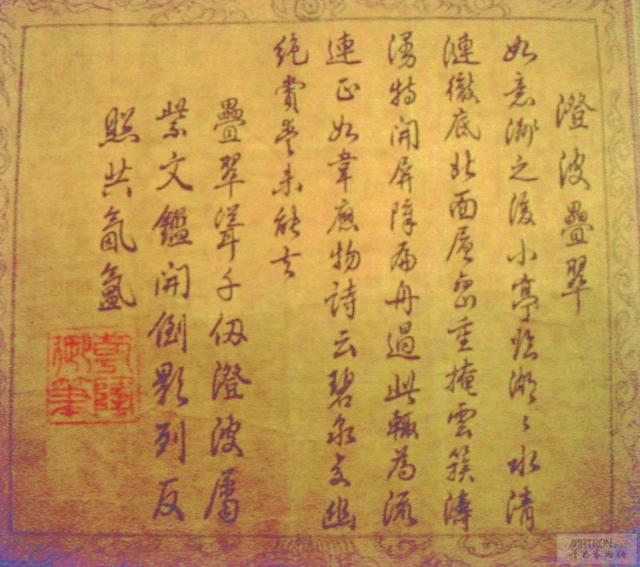 澄波疊翠
如意洲之後小亭臨湖〻水清
漣徹底北面層巒重掩雲簇濤
湧特開屏障扁舟過此輒為流
連正如韋應物詩云碧泉交幽
絕賞愛未能去
疊翠聳千仞澄波屬
紫文鑑開倒影列反
照共氤氳
乾隆
御筆
ARTRON